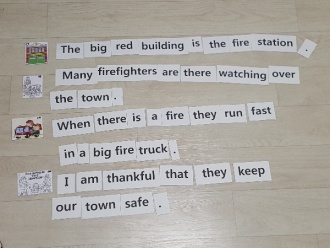 The big red building is the fire station .
Many firefighters are there watching over
the town .
When there is a fire they run fast
in a big fire truck .
I am thankful that they keep
our town safe .